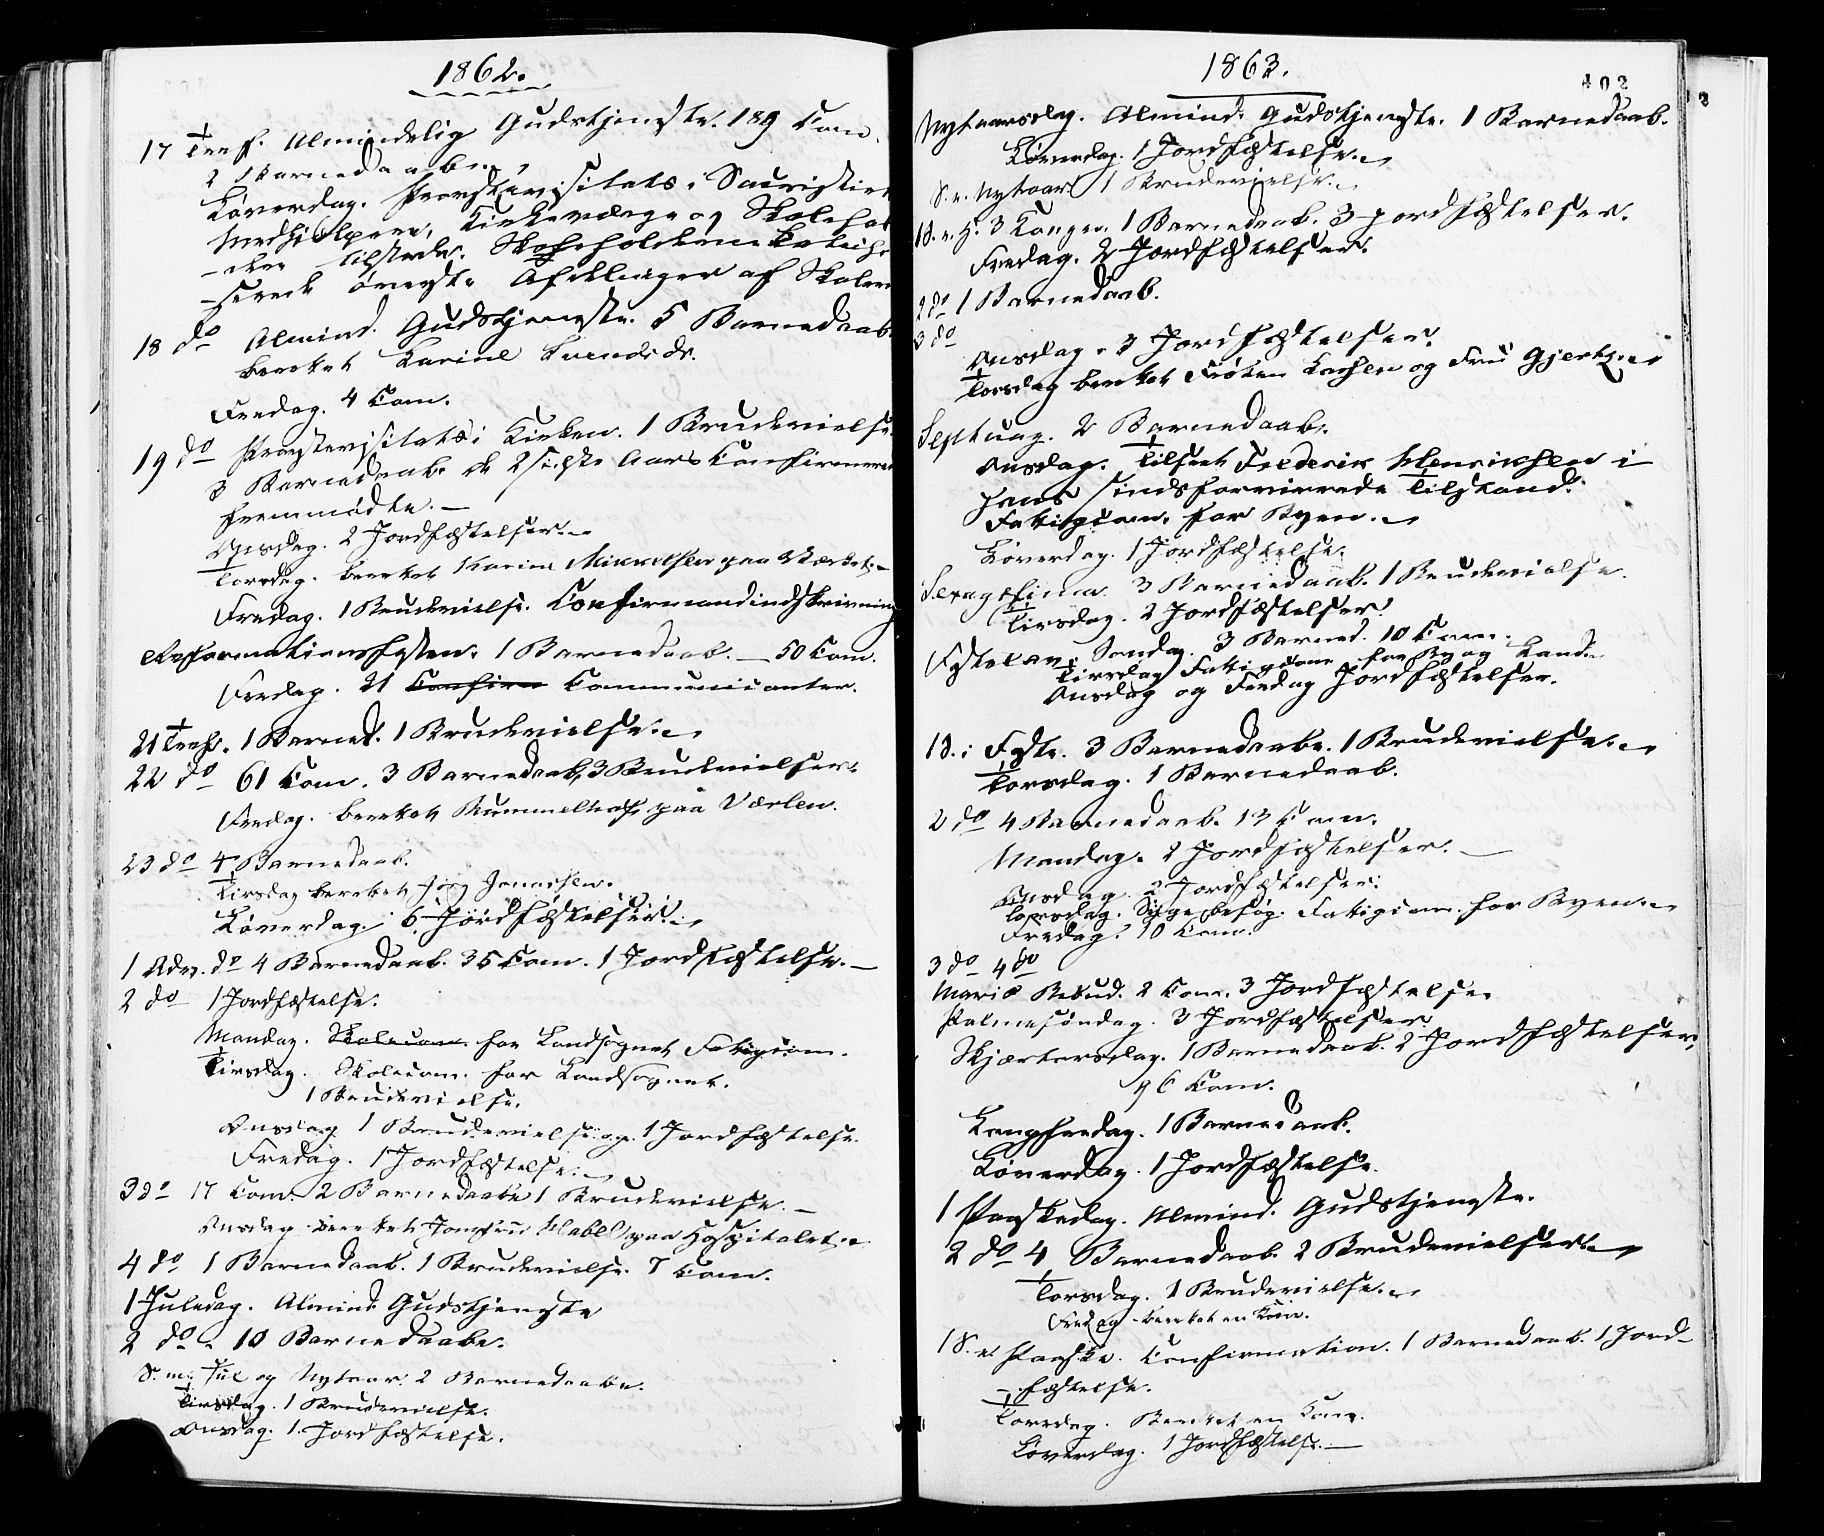 1862.
17 Tref. Almindelig Gudstjeneste. 189 Com.
2 Barnedaabe.
Løverdag. Provstevisitats i Sacristiet
Medhjelpere, Kirkeværge og Skolehol
-dere tilstede. Skoleholderne
-serede øverste Afdelinger af Skolen
18 do Almind. Gudstjeneste. 5 Barnedaab
berettet Karine Svends D.
Fredag. 4 Com.
19 do Provstevisitats i Kirken. 1 Brudevielse.
3 Barnedaab. de 2 sidste Aars Confirmerede
fremmødte. —
Onsdag. 2 Jordfæstelser.
Torsdag. berettet Karine Mikkelsen paa Værket. —
Fredag. 1 Brudevielse. Confirmandindskrivning
Reformationsfesten. 1 Barnedaab. — 50 Com.
Fredag. 21 Confirm Communicanter.
21 Tref. 1 Barned. 1 Brudevielse.
22 do 61 Com. 3 Barnedaab, 3 Brudevielser.
Fredag. berettet paa Værlen.
23 do 4 Barnedaab.
Tirsdag berettet Jørg
Løverdag. 6 Jordfæstelser.
1 Adv. do 4 Barnedaab. 35 Com. 1 Jordfæstelse. —
2 do 1 Jordfæstelse.
Mandag. Skolecom. for Landsognet Fattigcom.
Tirsdag. Skolecom. for Landsognet.
1 Brudevielse.
Onsdag 1 Brudevielse og 1 Jordfæstelse.
Fredag. 1 Jordfæstelse.
3 do 17 Com. 2 Barnedaabe 1 Brudevielse. —
Onsdag berettet Jomfru Habel paa Hospitalet.
4 do 1 Barnedaab. 1 Brudevielse. 7 Com.
1 Juledag. Almind. Gudstjeneste
2 do 10 Barnedaabe.
S. m. Jul og Nytaar. 2 Barnedaabe.
Tirsdag. 1 Brudevielse.
Onsdag. 1 Jordfæstelse.
1863.
402
Nytaarsdag. Almind. Gudstjeneste. 1 Barnedaab.
Løverdag. 1 Jordfæstelse.
S. e. Nytaar 1 Brudevielse.
1 S. e. H. 3 Konger. 1 Barnedaab. 3 Jordfæstelser.
Fredag. 2 Jordfæstelser.
2 do 1 Barnedaab.
3 do
Onsdag. 3 Jordfæstelser.
Torsdag berettet Frøken og Fru Gjertz.
Septuag. 2 Barnedaab.
Onsdag. Tilseet Frederik Henriksen i
hans sindsforvirrede Tilstand.
Fattigcom. for Byen.
Løverdag. 1 Jordfæstelse.
Sexagesima. 3 Barnedaab. 1 Brudevielse.
Tirsdag. 2 Jordfæstelser.
Fastelavn Søndag. 3 Barned. 10 Com.
Tirsdag Fattigcom. for By og Land.
Onsdag og Fredag Jordfæstelser.
1 S. i Faste. 3 Barnedaabe. 1 Brudevielse.
Torsdag. 1 Barnedaab.
2 do 4 Barnedaab. 13 Com.
Mandag. 2 Jordfæstelser. —
Onsdag. 2 Jordfæstelser.
Torsdag. Sygebesøg. Fattigcom. for Byen.
Fredag. 10 Com.
3 do 4 do
Mariæ Bebud. 2 Com. 3 Jordfæstelse.
Palmesøndag. 3 Jordfæstelser.
Skjærtorsdag. 1 Barnedaab. 2 Jordfæstelser,
96 Com.
Langfredag. 1 Barnedaab.
Løverdag. 1 Jordfæstelse.
1 Paaskedag. Almind. Gudstjeneste.
2 do 4 Barnedaab. 2 Brudevielser.
Torsdag. 1 Brudevielse.
Fredag berettet en Kone.
1 S. e. Paaske. Confirmation. 1 Barnedaab. 1 Jord-
-fæstelse.
Torsdag. Berettet en Kone.
Løverdag. 1 Jordfæstelse. —